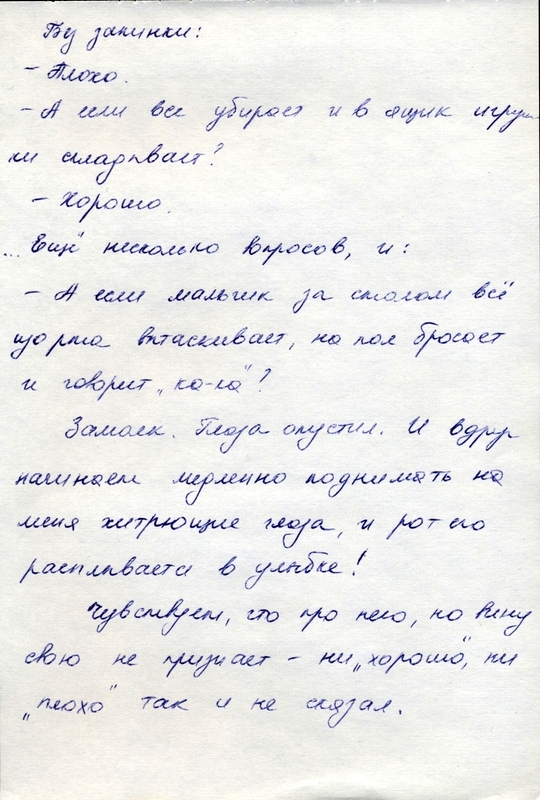 Без запинки:
- Плохо.
- А если все убирает и в ящик игруш-
ки складывает?
- Хорошо.
... Ещё несколько вопросов, и:
- А если мальчик за столом всё
изо рта вытаскивает, на пол бросает
и говорит „ка-ка"?
Замолк. Глаза опустил. И вдруг
начинает медленно поднимать на
меня хитрющие глаза, и рот его
расплывается в улыбке!
Чувствует, что про него, но вину
свою не признает - ни „хорошо", ни
„плохо" так и не сказал.